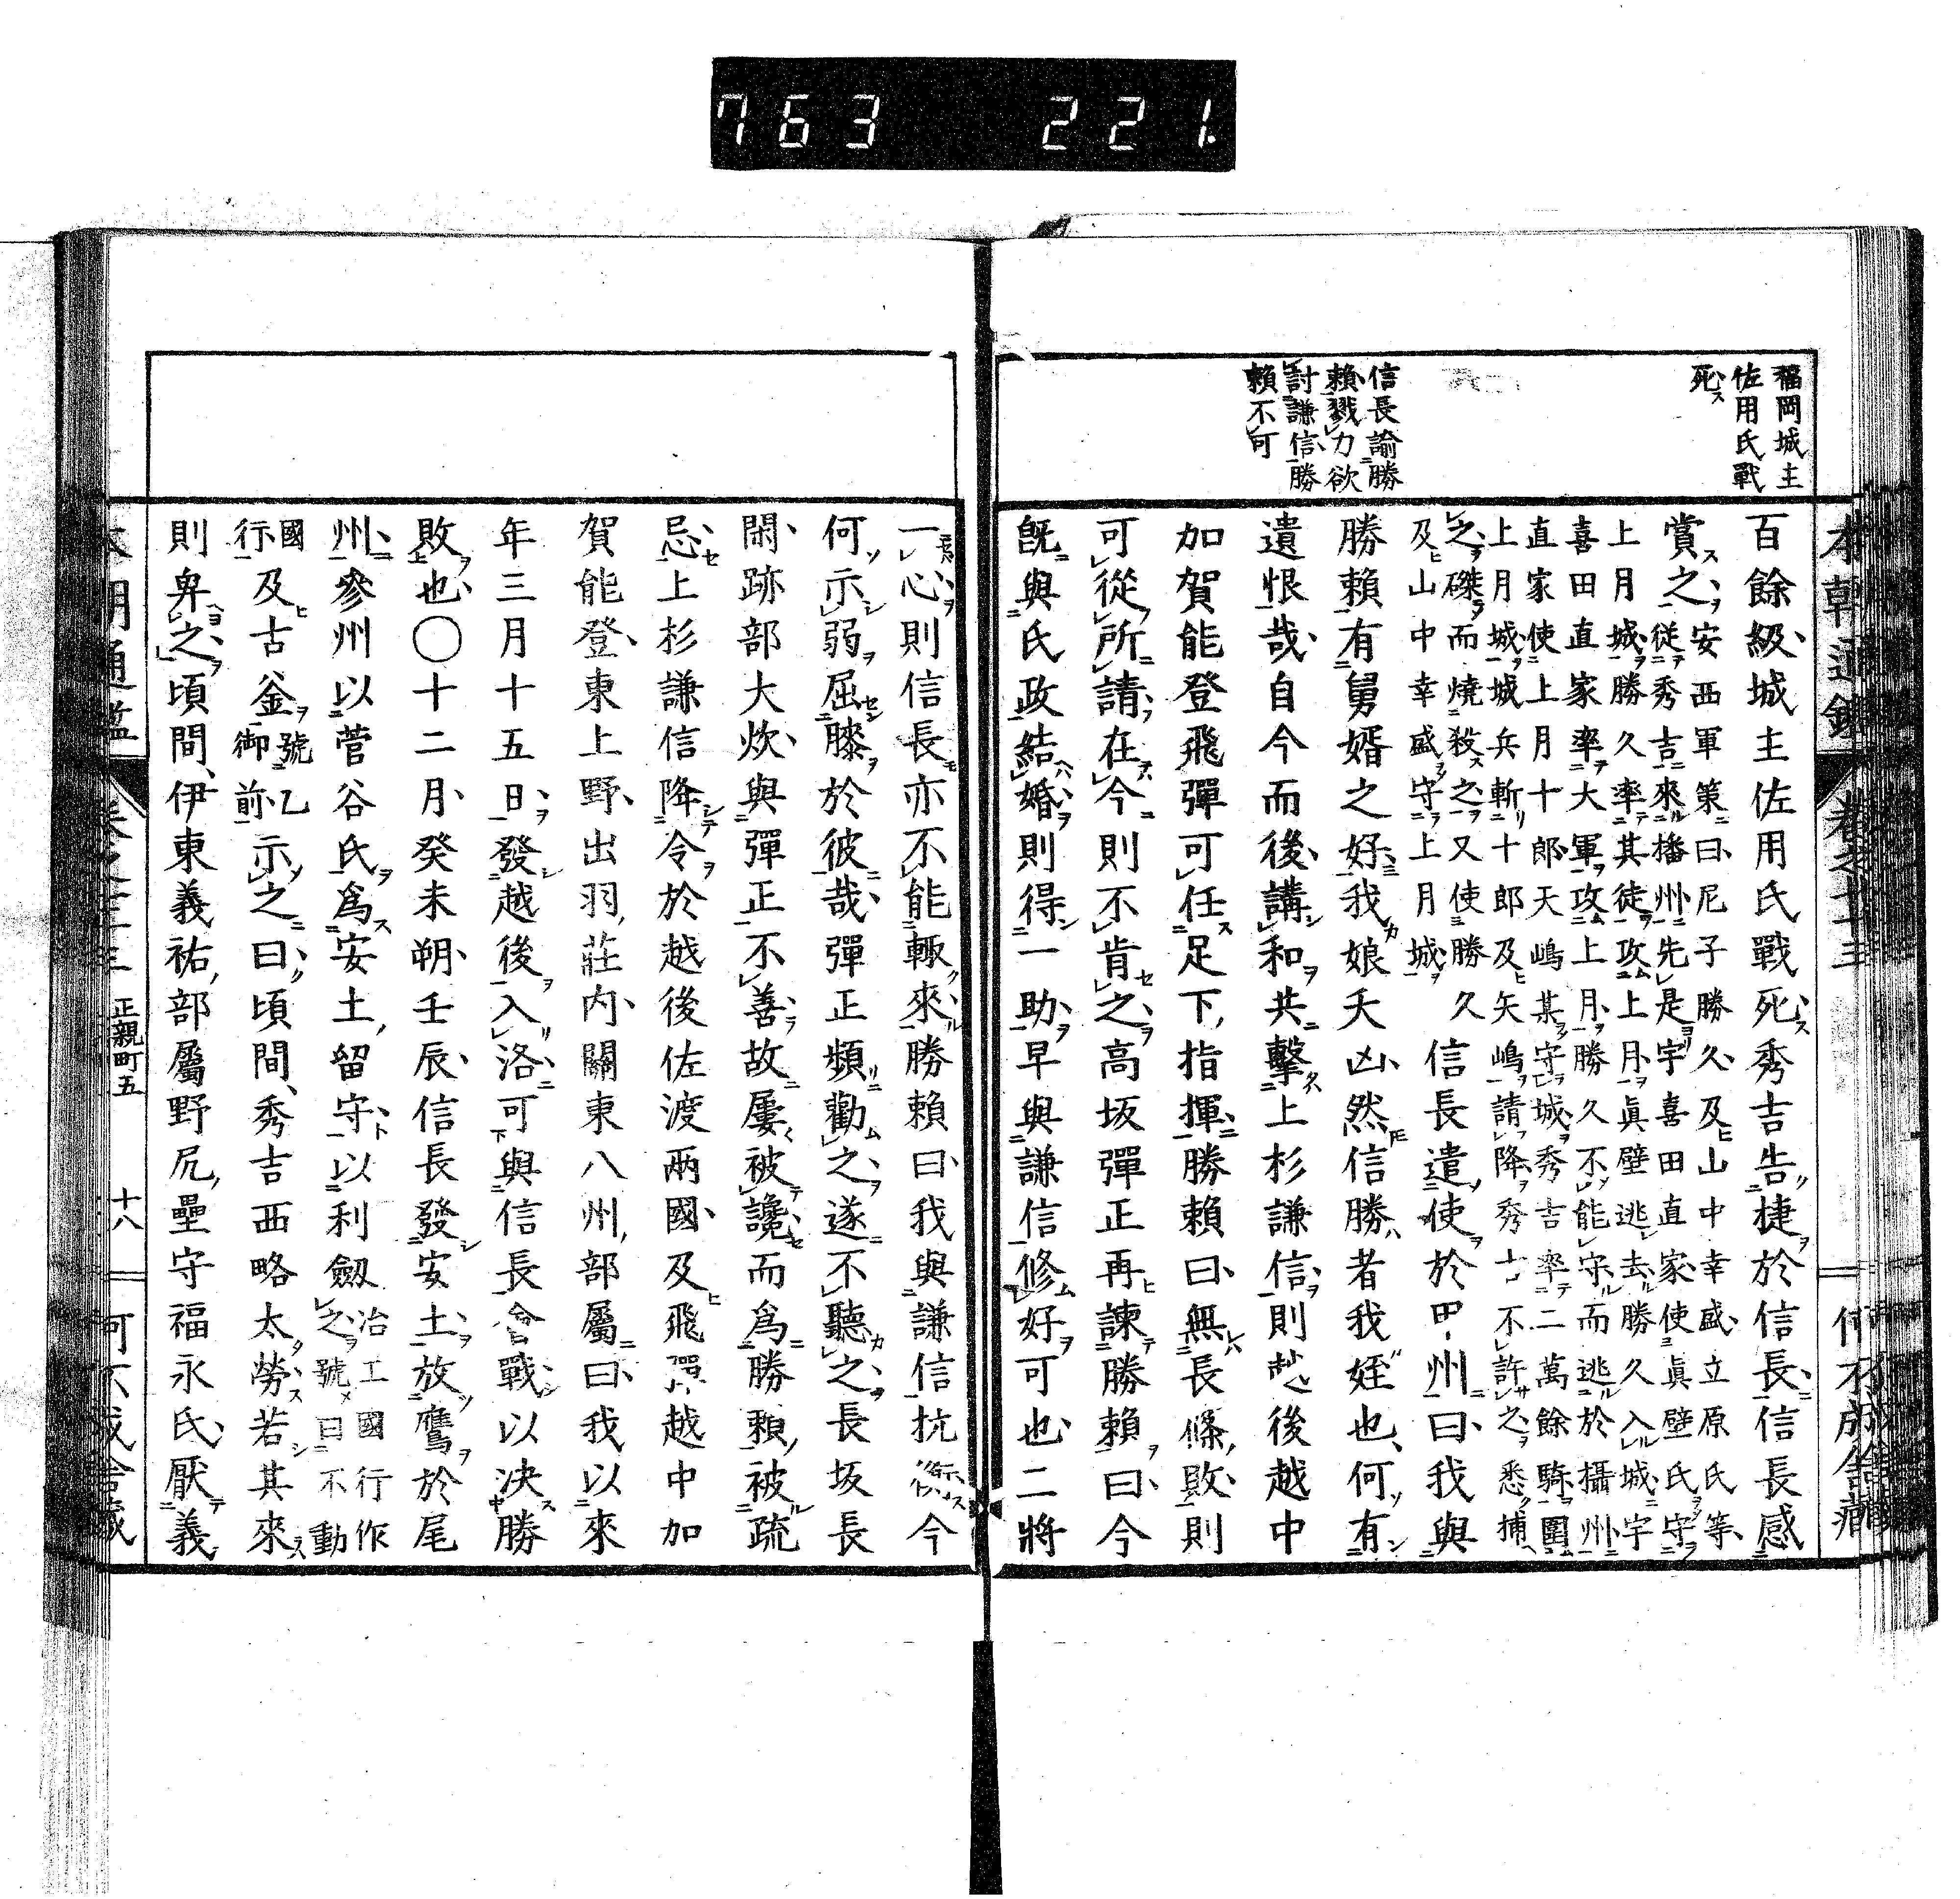 763 221.
福岡城主
佐用氏戰
死
信長諭勝
賴戮力欲
討謙信勝
賴不可
百餘級城主佐用氏戰死秀吉告捷於信長信長感
賞之
安西軍策曰尼子勝久及山中幸盛立原氏等
從秀吉來播州先是宇喜田直家使眞壁氏守
上月城勝久率其徒攻上月眞壁逃去勝久入城宇
喜田直家率大軍攻上月勝久不能守而逃於攝州
直家使上月十郎天嶋某守城秀吉率二萬餘騎圍
上月城城兵斬十郎及矢嶋請降秀吉不許之悉捕
之磔而燒殺之又使勝久
及山中幸盛守上月城
信長遣使於甲州曰我與
勝賴有舅婿之好我娘夭凶然信勝者我姪也何有
遺恨哉自今而後講和共擊上杉謙信則越後越中
加賀能登飛彈可任足下指揮勝賴曰無長條敗則
可從所請在今則不肯之高坂彈正再諫勝賴曰今
旣與氏政結婚則得一助早與謙信修好可也二將
一心則信長亦不能輙來勝賴曰我與謙信抗衡今
何示弱屈膝於彼哉彈正頻勸之遂不聽之長坂長
閑跡部大炊與彈正不善故屢被讒而爲勝賴被疏
忌上杉謙信降令於越後佐渡兩國及飛彈越中加
賀能登東上野出羽莊内關東八州部屬曰我以來
年三月十五日發越後入洛可與信長會戰以决勝
敗也〇十二月癸未朔壬辰信長發安土放鷹於尾
州參州以菅谷氏爲安土留守以利劔
冶工國行作
之號曰不動
國
行
及古釜
號乙
御前
示之曰頃間秀吉西略太勞若其來
則卑之頃間伊東義祐部屬野尻壘守福永氏厭義
正親町五
十八